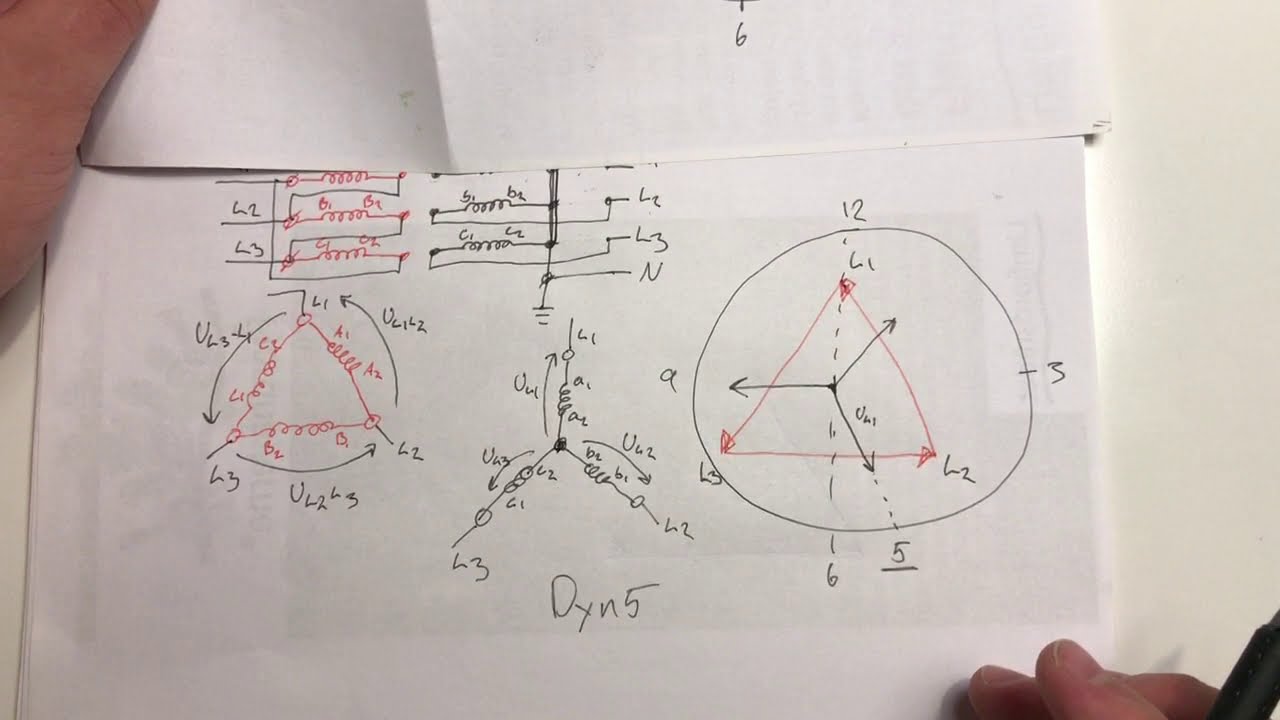 6
L2 B1 B2 b1 b2 L2
L3 C1 C2 c1 c2 L3
N
L1
UL3-L1 UL1L2
C2 A1
C1 A2
B2 B1
L3 L2
UL2L3
L1
UL1 a1
a2
UL3 c2 b2 UL2
c1 b1
L3 L2
Dyn5
12
L1
9 3
UL1
L3 L2
6 5